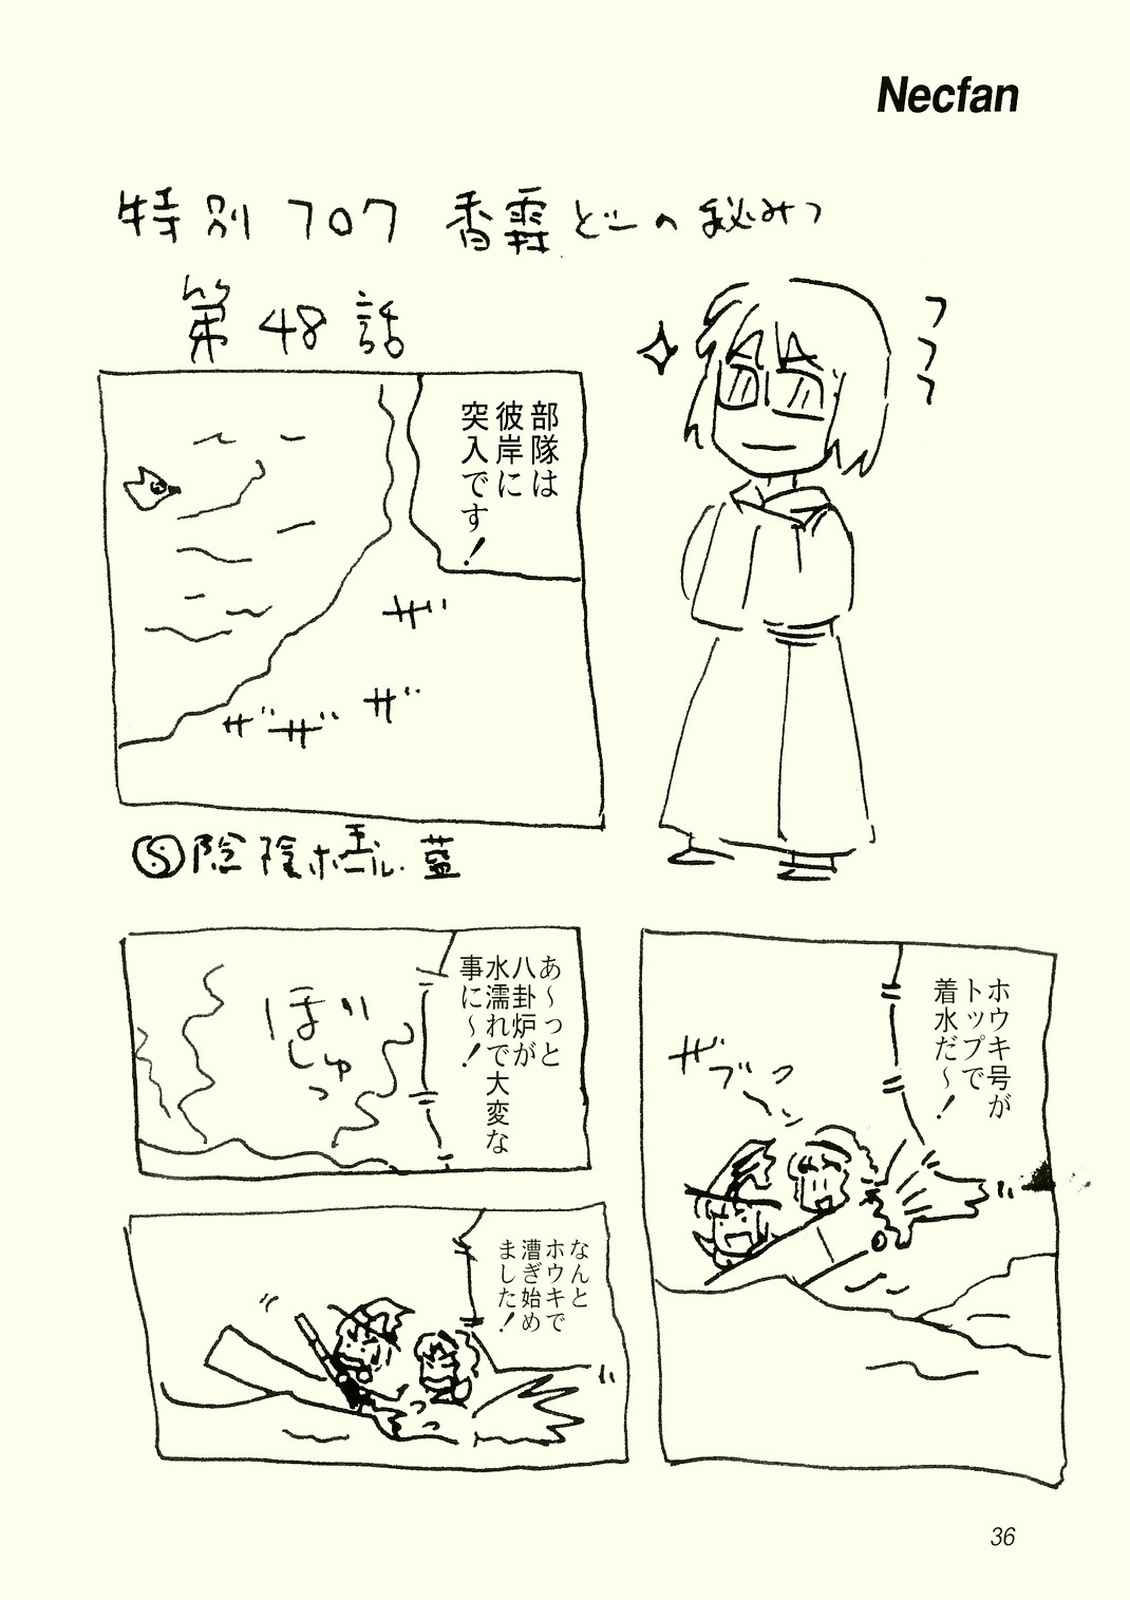 Necfan
特別 フロク 香霖どーの秘みつ
第48話
フフフ
部隊は
彼岸に
突入です！
ザ
ザ
ザ
ザ
陰陰ホ゛ール・蓋
ホウキ号が
トップで
着水だ～！
ザブーン
あ～っと
八卦炉が
水濡れで大変な
事に～！
ほ
しゅっ
なんと
ホウキで
漕ぎ始め
ました！
36